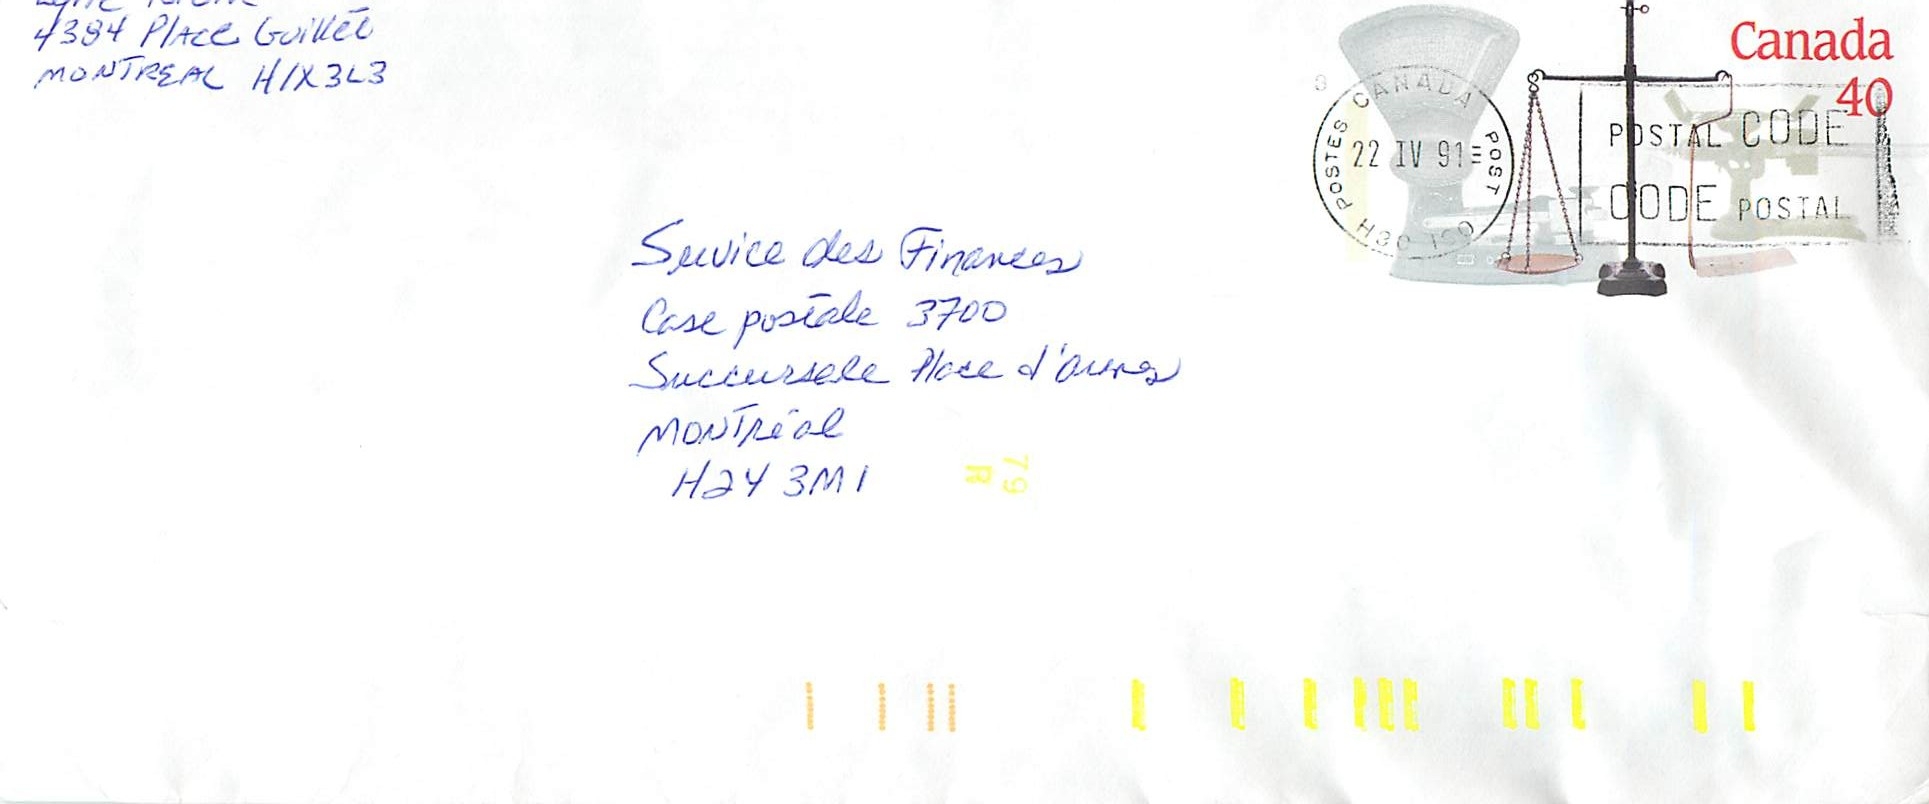 4384 Place Guillet
MONTREAL H1X3L3
Canada
40
POSTES CANADA POST
22 IV 91
H3C 1S0
POSTAL CODE
CODE POSTAL
Service des Finances
Case postale 3700
Succursale Place d'Armes
Montréal
H2Y 3M1
79
R